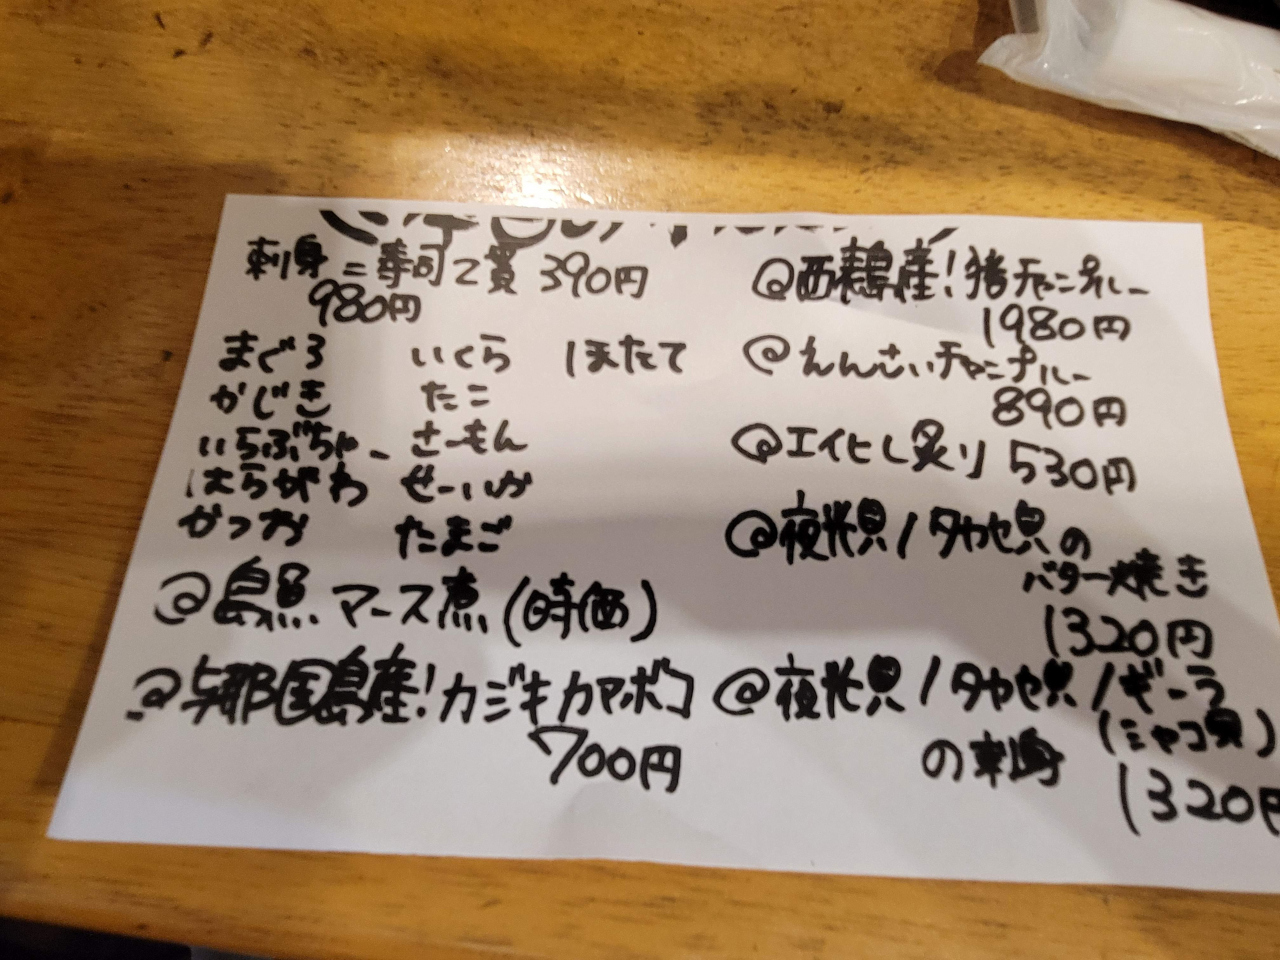 刺身 = 寿司2貫 390円
980円
まぐろ いくら ほたて
かじき たこ
いらぶちゃー さーもん
はらがわ せーいか
かつお たまご
@島魚 マース煮 (時価)
@与那国島産!カジキカマボコ
700円
@西表島産!猪チャンプルー
1980円
@えんさいチャンプルー
890円
@エイヒレ炙り 530円
@夜光貝/タカセ貝の
バター焼き
1320円
@夜光貝/タカセ貝/ギーラ
(シャコ貝)
の刺身
1320円